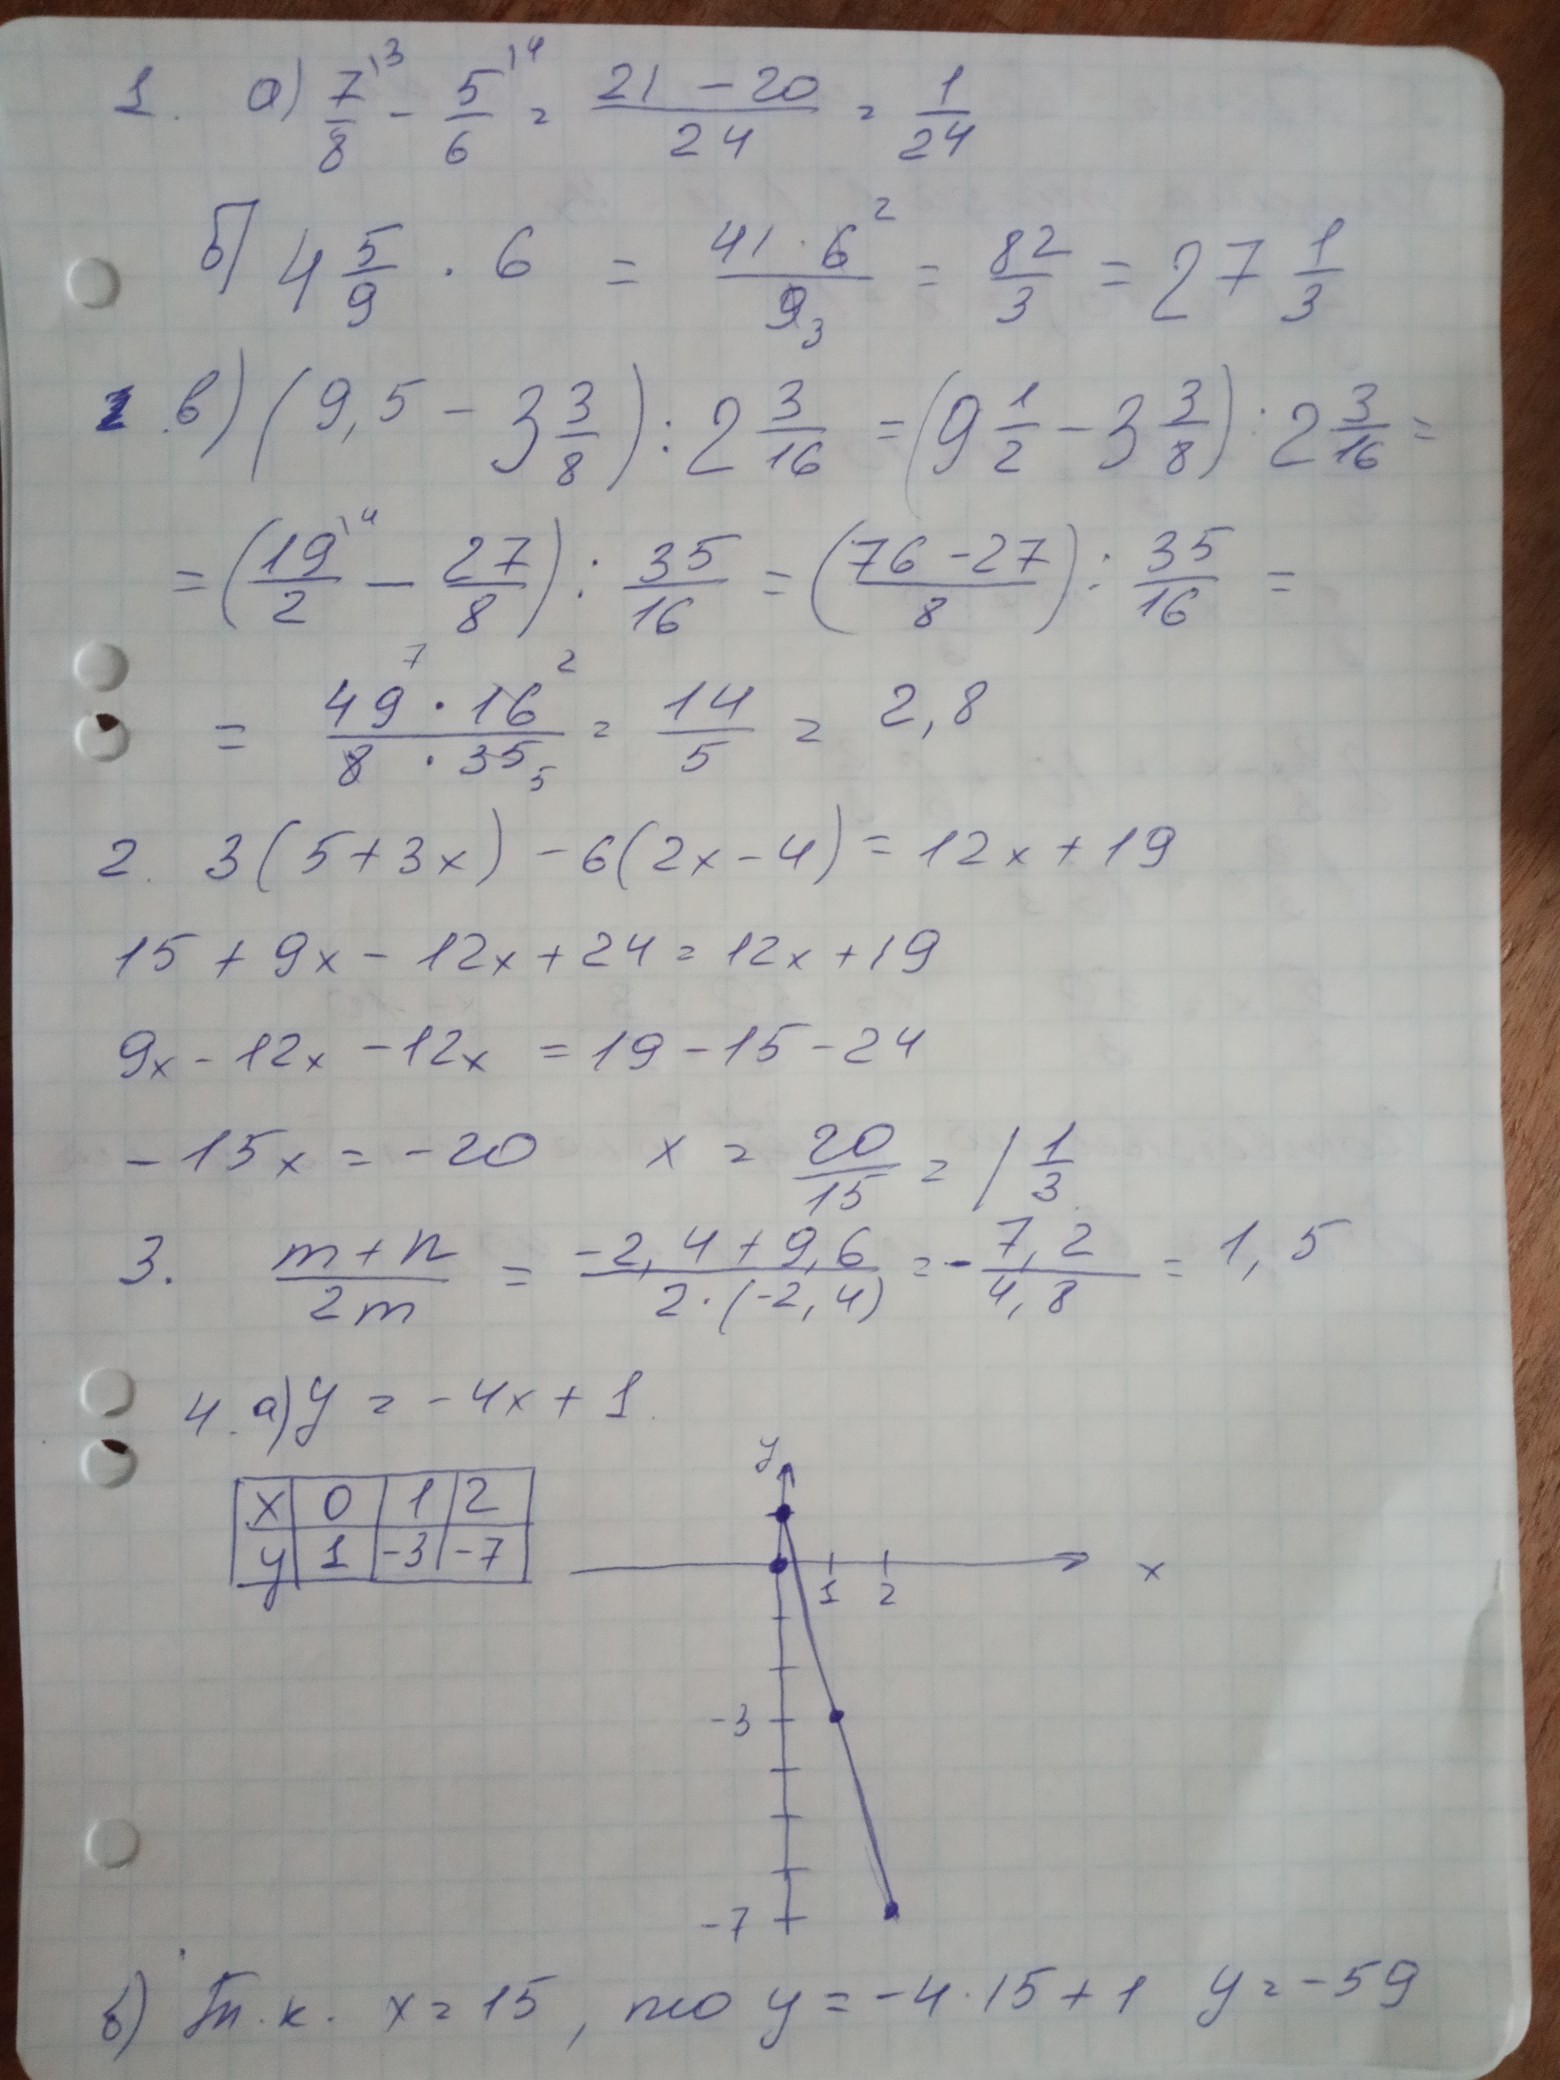 1. а) 7/8 ^3 - 5/6 ^4 = (21 - 20)/24 = 1/24
б) 4 5/9 · 6 = (41 · 6 ^2)/(9 _3) = 82/3 = 27 1/3
1. в) (9,5 - 3 3/8) : 2 3/16 = (9 1/2 - 3 3/8) : 2 3/16 =
= (19/2 ^4 - 27/8) : 35/16 = ((76 - 27)/8) : 35/16 =
= (49 ^7 · 16 ^2)/(8 · 35 _5) = 14/5 = 2,8
2. 3(5+3x) - 6(2x-4) = 12x + 19
15 + 9x - 12x + 24 = 12x + 19
9x - 12x - 12x = 19 - 15 - 24
-15x = -20 x = 20/15 = 1 1/3
3. (m+n)/2m = (-2,4 + 9,6)/(2·(-2,4)) = - 7,2/4,8 = 1,5
4. а) y = -4x + 1.
x 0 1 2
y 1 -3 -7
y
x
1 2
-3
-7
б) Т.к. x = 15, то y = -4·15 + 1 y = -59